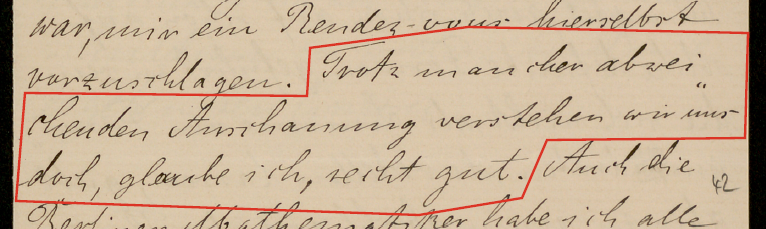 war, mir ein Rendez-vous hierselbst
vorzuschlagen. Trotz mancher abwei
chenden Anschauung verstehen wir uns
doch, glaube ich, recht gut. Auch die
42
Berliner Mathematiker habe ich alle